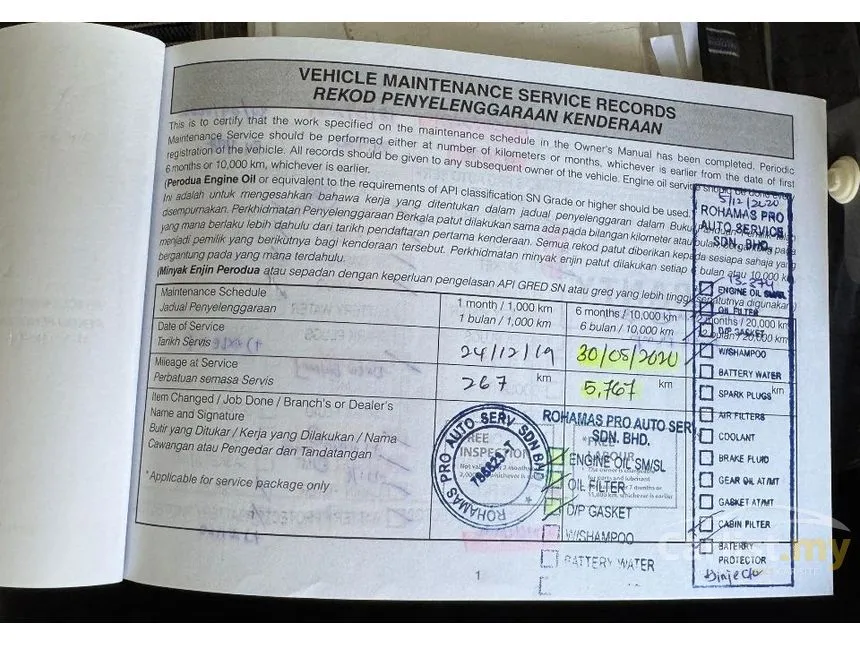 VEHICLE MAINTENANCE SERVICE RECORDS
REKOD PENYELENGGARAAN KENDERAAN
This is to certify that the work specified on the maintenance schedule in the Owner's Manual has been completed. Periodic
Maintenance Service should be performed either at number of kilometers or months, whichever is earlier from the date of first
registration of the vehicle. All records should be given to any subsequent owner of the vehicle. Engine oil service should be done every
6 months or 10,000 km, whichever is earlier.
(Perodua Engine Oil or equivalent to the requirements of API classification SN Grade or higher should be used.)
Ini adalah untuk mengesahkan bahawa kerja yang ditentukan dalam jadual penyelenggaran dalam Buku Panduan
disempurnakan. Perkhidmatan Penyelenggaraan Berkala patut dilakukan sama ada pada bilangan kilometer atau bulan bergantung pada
yang mana berlaku lebih dahulu dari tarikh pendaftaran pertama kenderaan. Semua rekod patut diberikan kepada sesiapa sahaja yang
menjadi pemilik yang berikutnya bagi kenderaan tersebut. Perkhidmatan minyak enjin patut dilakukan setiap 6 bulan atau 10,000 km
bergantung pada yang mana terdahulu.
(Minyak Enjin Perodua atau sepadan dengan keperluan pengelasan API GRED SN atau gred yang lebih tinggi sepatutnya digunakan)
Maintenance Schedule
Jadual Penyelenggaraan
1 month / 1,000 km
1 bulan / 1,000 km
6 months / 10,000 km
6 bulan / 10,000 km
months / 20,000 km
bulan / 20,000 km
Date of Service
Tarikh Servis
24/12/19
30/05/2020
Mileage at Service
Perbatuan semasa Servis
267 km
5,767 km
km
Item Changed / Job Done / Branch's or Dealer's
Name and Signature
Butir yang Ditukar / Kerja yang Dilakukan / Nama
Cawangan atau Pengedar dan Tandatangan
*Applicable for service package only
FREE
INSPECTION
ROHAMAS PRO AUTO SERV SDN BHD
788823-T
ROHAMAS PRO AUTO SERV
SDN. BHD.
*FREE
LABOUR
ENGINE OIL SM/SL
OIL FILTER
D/P GASKET
W/SHAMPOO
BATTERY WATER
5/12/2020
ROHAMAS PRO
AUTO SERVICE
SDN. BHD.
13-274
ENGINE OIL SM/SL
OIL FILTER
D/P GASKET
W/SHAMPOO
BATTERY WATER
SPARK PLUGS
AIR FILTERS
COOLANT
BRAKE FLUID
GEAR OIL AT/MT
GASKET AT/MT
CABIN FILTER
BATERRY
PROTECTOR
1
.my